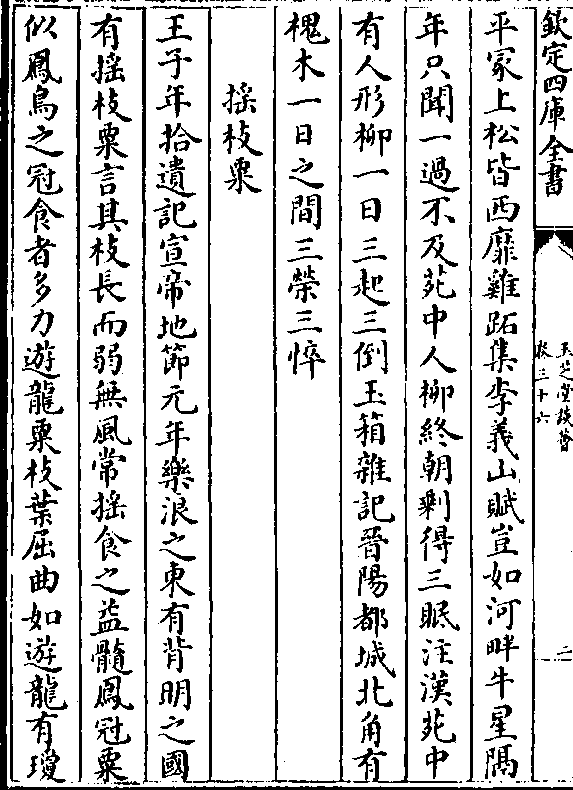 欽定四庫全書
玉芝堂談薈
卷三十六
二
平冢上松皆西靡雞跖集李義山賦豈如河畔牛星隔
年只聞一過不及苑中人柳終朝剰得三眠注漢苑中
有人形柳一日三起三倒玉箱雜記晉陽都城北角有
槐木一日之間三榮三悴
揺枝粟
王子年拾遺記宣帝地節元年樂浪之東有背明之國
有揺枝粟言其枝長而弱無風常揺食之益髓鳳冠粟
似鳳鳥之冠食者多力遊龍粟枝葉屈曲如遊龍有瓊